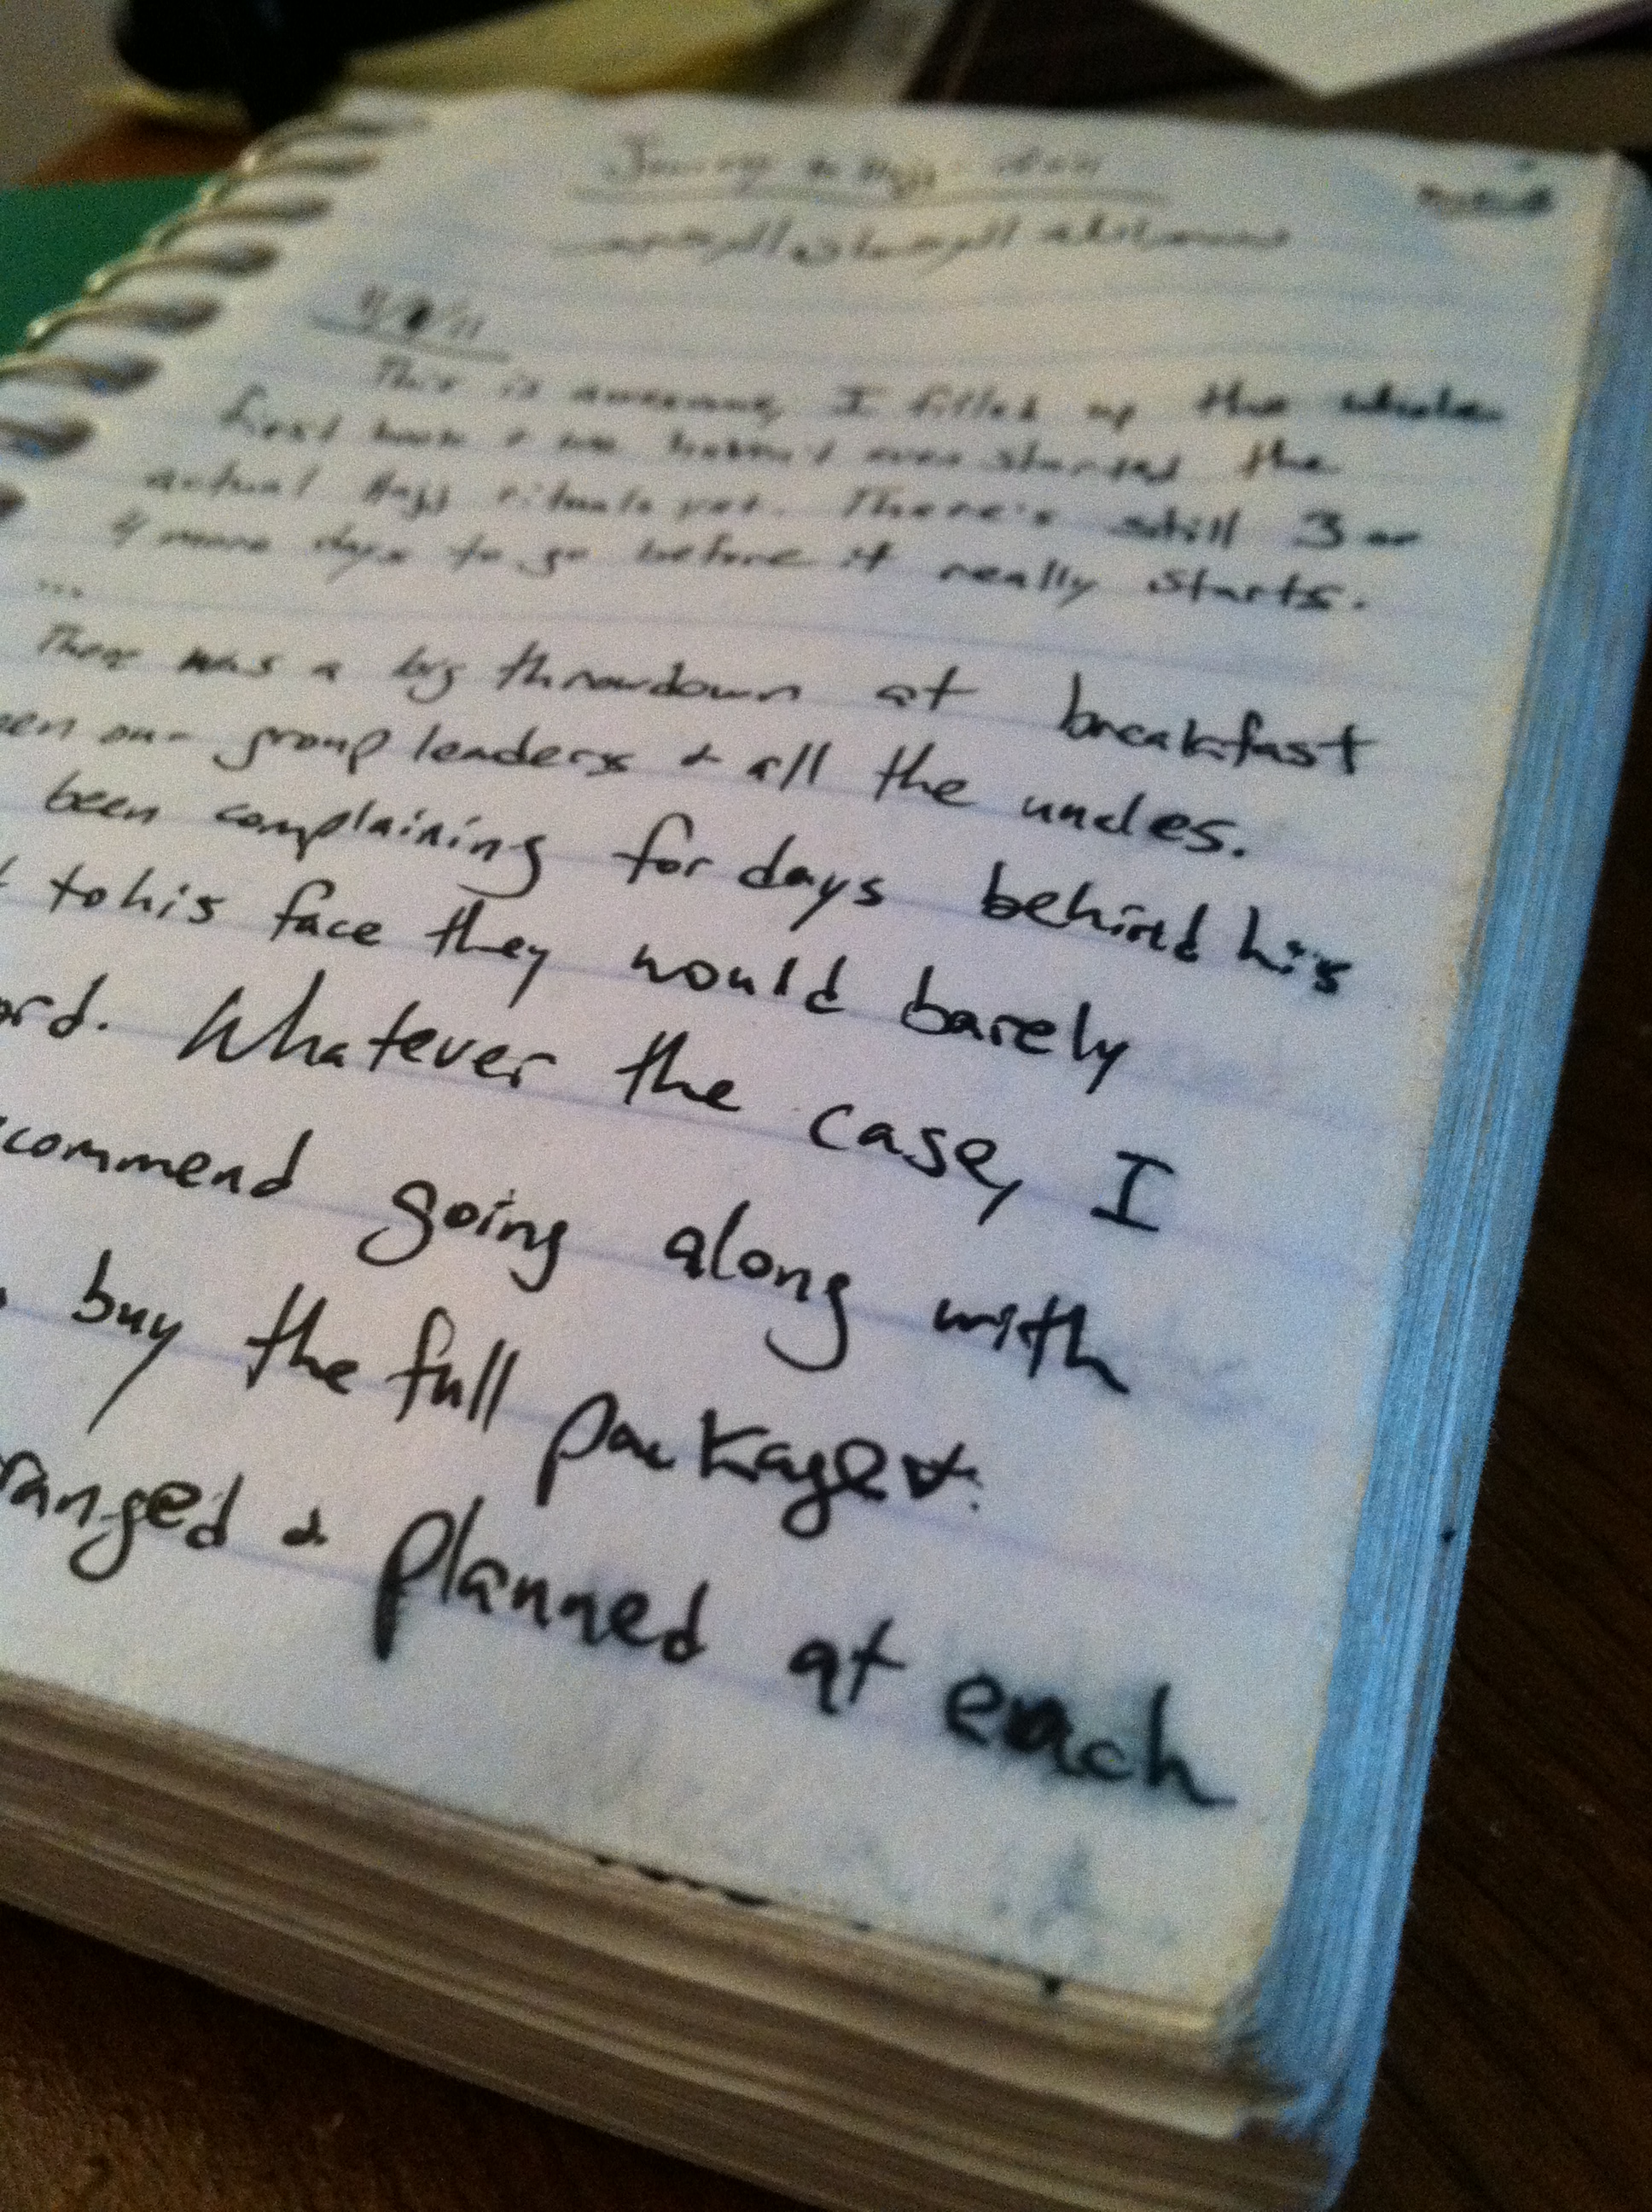 Journey to Hajj
This is awesome, I filled up the whole
first book & we haven't even started the
actual Hajj rituals yet. There's still 3 or
4 more days to go before it really starts.
...
There was a big throwdown at breakfast
een our group leaders & all the uncles.
been complaining for days behind his
to his face they would barely
ord. Whatever the case, I
commend going along with
buy the full package
ranged & planned at each